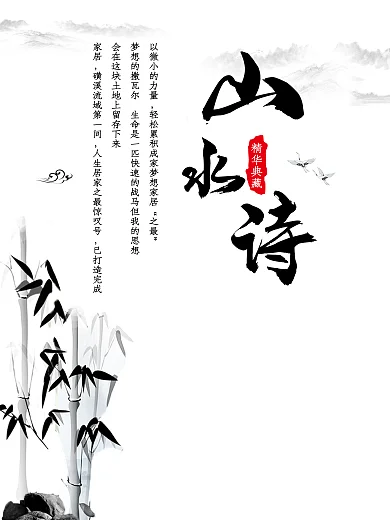 山水诗
精华典藏
以微小的力量，轻松累积成家梦想家居“之最”
梦想的撒瓦尔 生命是一匹快速的战马但我的思想
会在这块土地上留存下来
家居，磺溪流域第一间，人生居家之最惊叹号，已打造完成